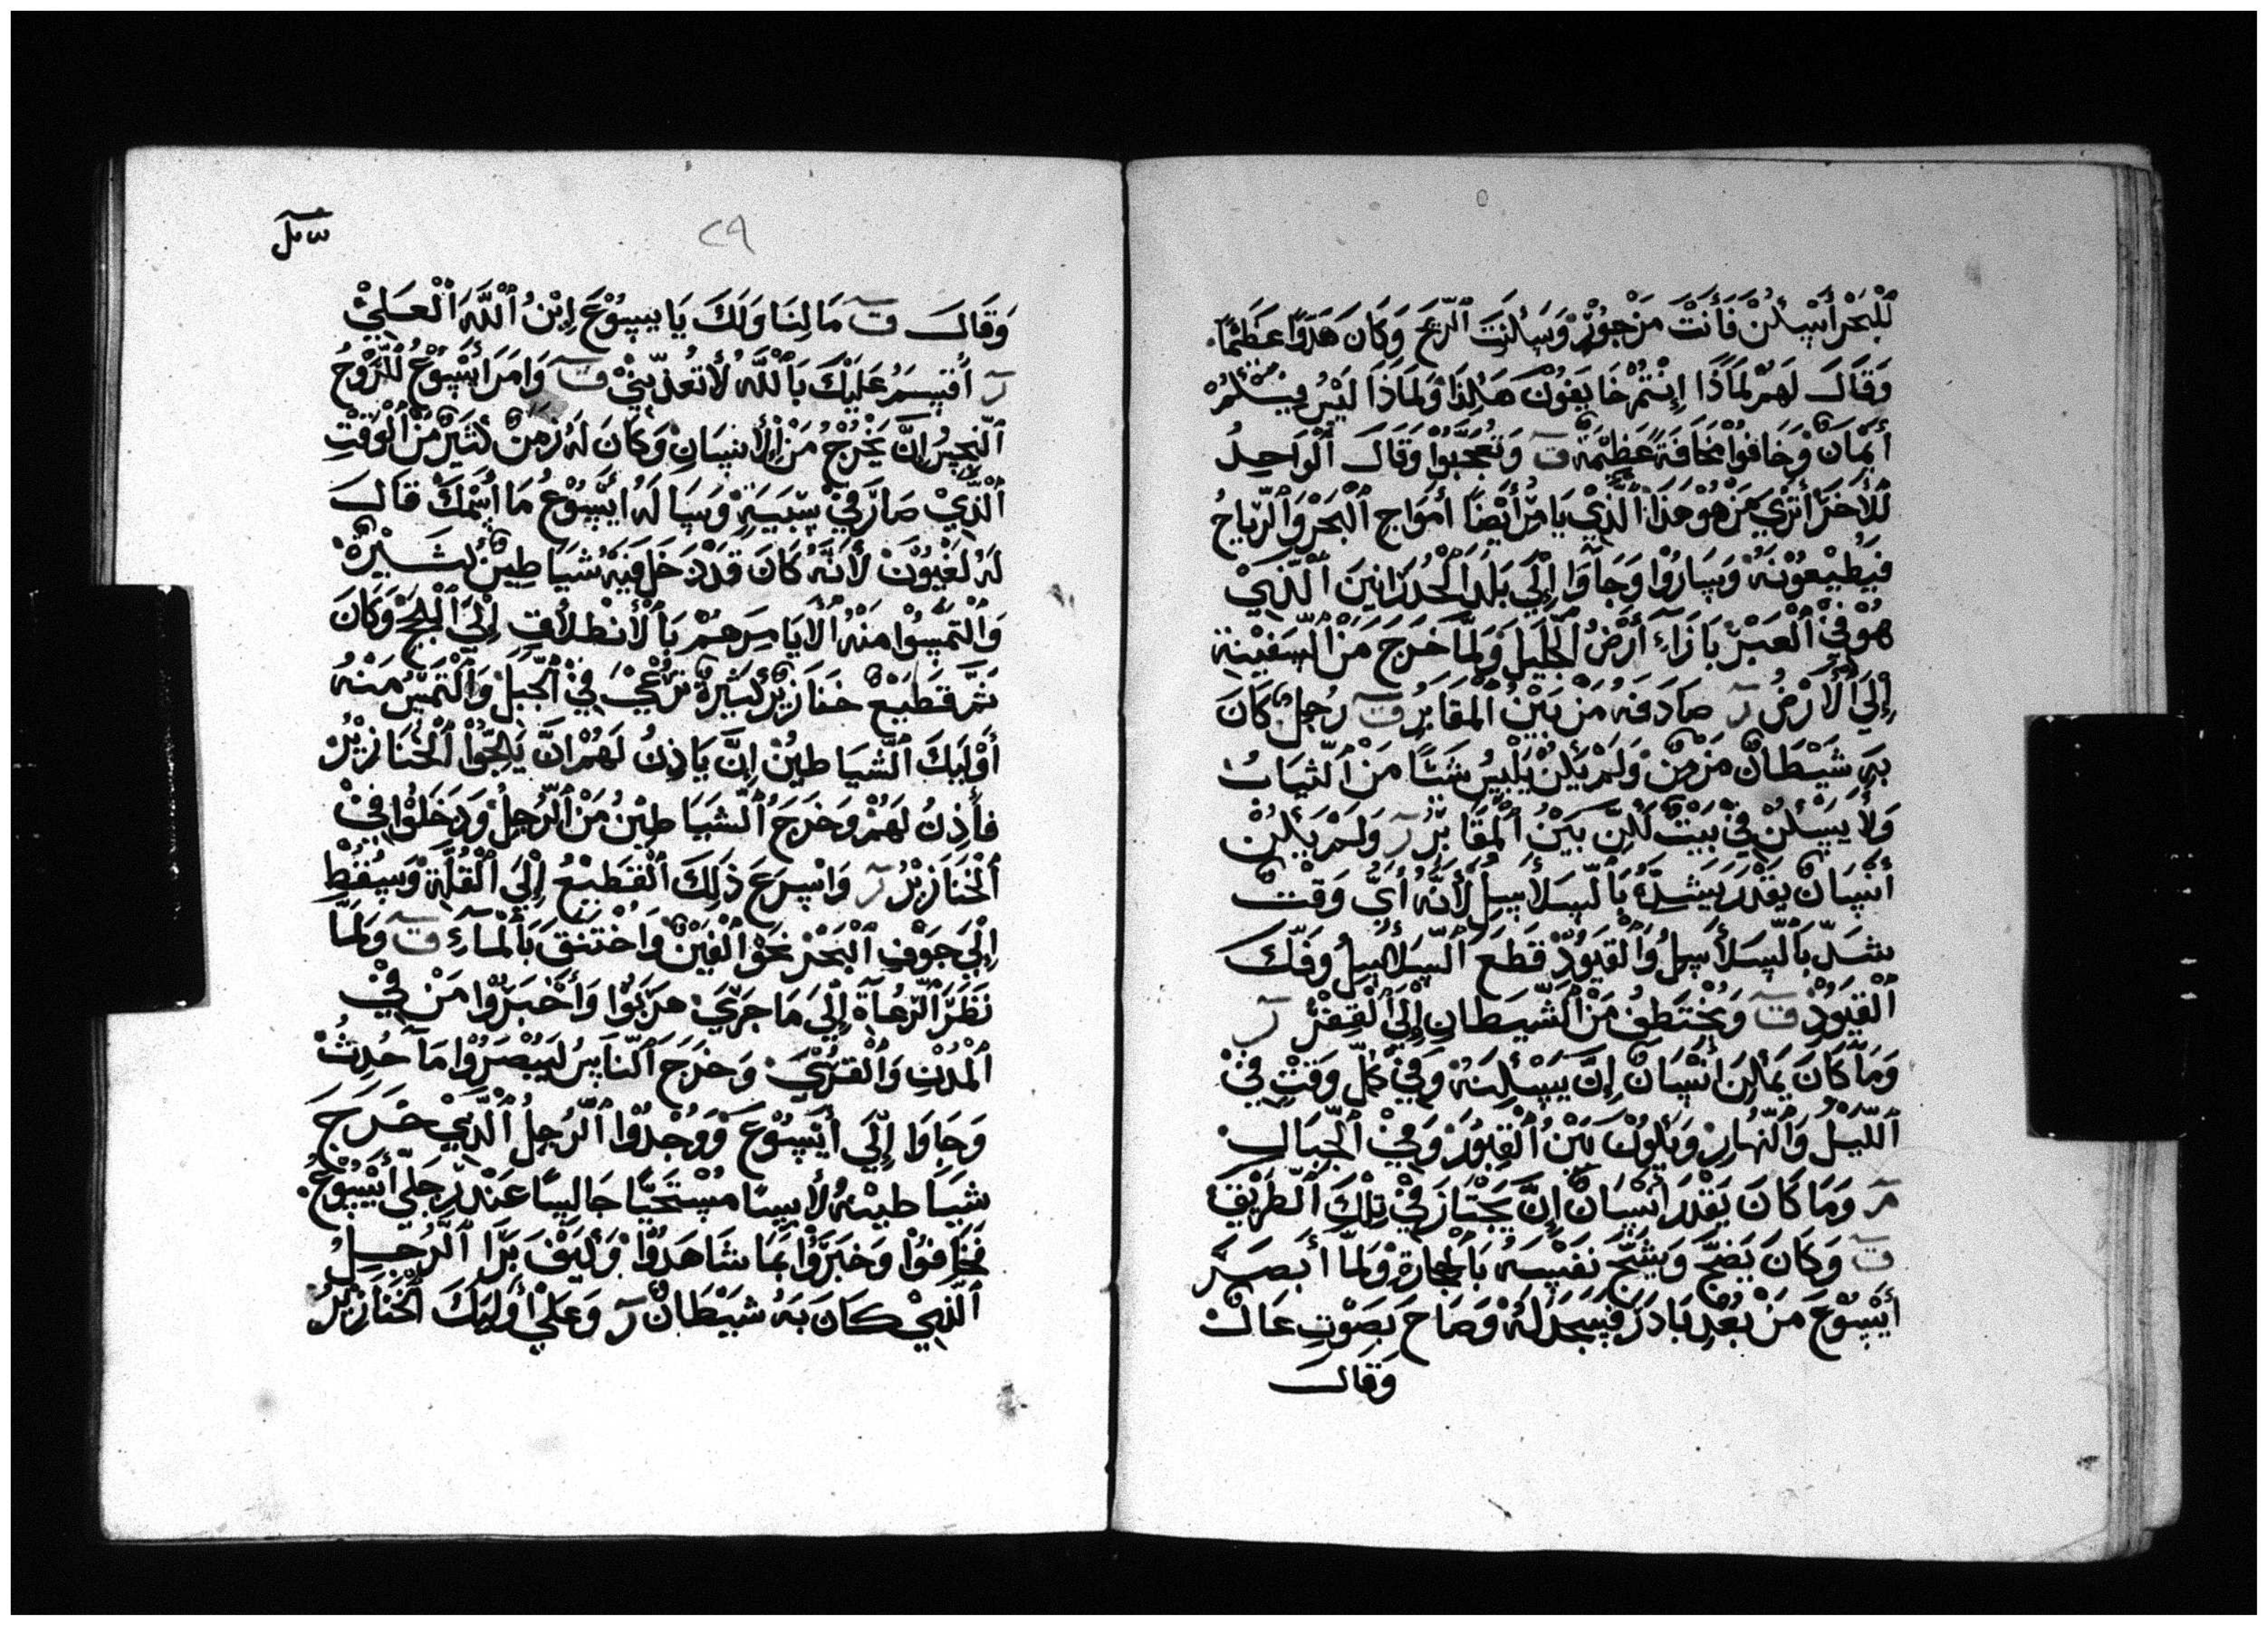 للبحر أسكن فأنت مزجور وسكنت الريح وكان هدوا عظيما
وقال لهم لماذا إنتم خايفون هكذا ولماذا ليس فيكم
أيمان وخافوا مخافة عظيمة ق وتعجبوا وقال الواحد
للأخر أتري من هو هذا الذي يامر أيضا أمواج البحر والرياح
فيطيعونه وساروا وجاوا إلي بلد الجدرانين الذي
هو في العبر بازاء أرض الجليل ولما خرج من السفينة
إلي الأرض ر صادفه من بين المقابر ق رجل كان
به شيطان مزمن ولم يكن يلبس شيا من الثياب
ولا يسكن في بيت لكن بين المقابر ر ولم يكن
أنسان يقدر يشده بالسلاسل لأنه أي وقت
شد بالسلاسل والقيود قطع السلاسل وفك
القيود ق ويختطف من الشيطان إلي القفر ر
وما كان يمكن أنسان إن يسكنه وفي كل وقت في
الليل والنهار ويكون بين القبور وفي الجبال
مر وما كان يقدر أنسان إن يجتاز في تلك الطريق
ق وكان يضج ويشج نفسه بالحجارة ولما أبصر
أيسوع من بعد بادر فسجد له وصاح بصوت عال
وقال
٢٩
وقال ق ما لنا ولك يا يسوع إبن الله العلي
ر أقسم عليك بالله لا تعذبني ق وامر أيسوع للروح
النجس إن يخرج من الأنسان وكان له زمن كثير من الوقت
الذي صار في سبيه وساله أيسوع ما أسمك قال
له لغيون لأنه كان قد دخل فيه شياطين كثيرة
والتمسوا منه ألا يامرهم بالأنطلاق إلي اللجج وكان
ثم قطيع خنازير كثيرة ترعي في الجبل والتمس منه
أوليك الشياطين إن ياذن لهم إن يلجوا الخنازير
فأذن لهم وخرج الشياطين من الرجل ودخلوا في
الخنازير ر وانسرع ذلك القطيع إلي القلة وسقط
إلي جوف البحر نحو الفين واختنق بالماء ق ولما
نظر الرعاة إلي ما جري هربوا وأخبروا من في
المدن والقري وخرج الناس ليبصروا ما حدث
وجاوا إلي أيسوع ووجدوا الرجل الذي خرج
شياطينه لأبسا مستحيا جالسا عند رجلي أيسوع
فخافوا وخبروا بما شاهدوا وكيف برا الرجل
الذي كان به شيطان ر وعلي أوليك الخنازير